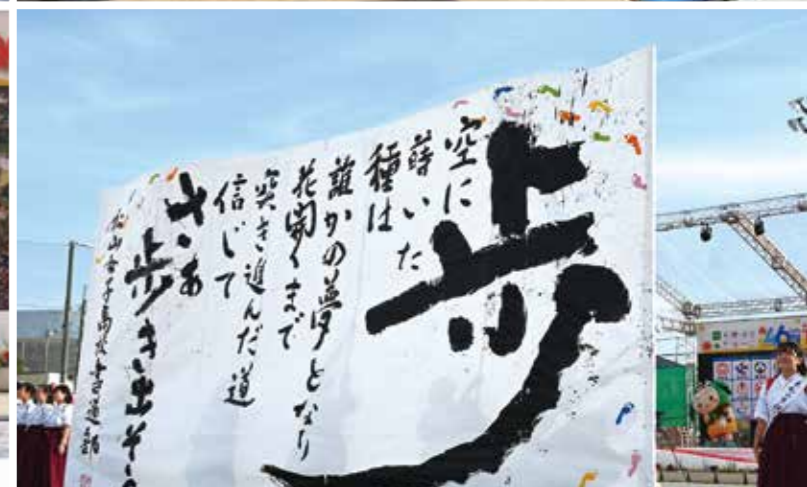 歩
空に
蒔いた
種は
誰かの夢となり
花開くまで
突き進んだ道
信じて
さあ
歩き出そう
松山女子高校書道部